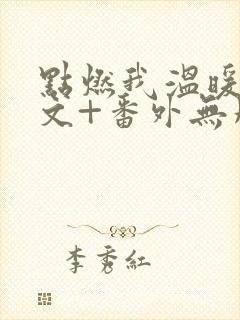 點燃我 溫暖
文+番外無
李秀紅